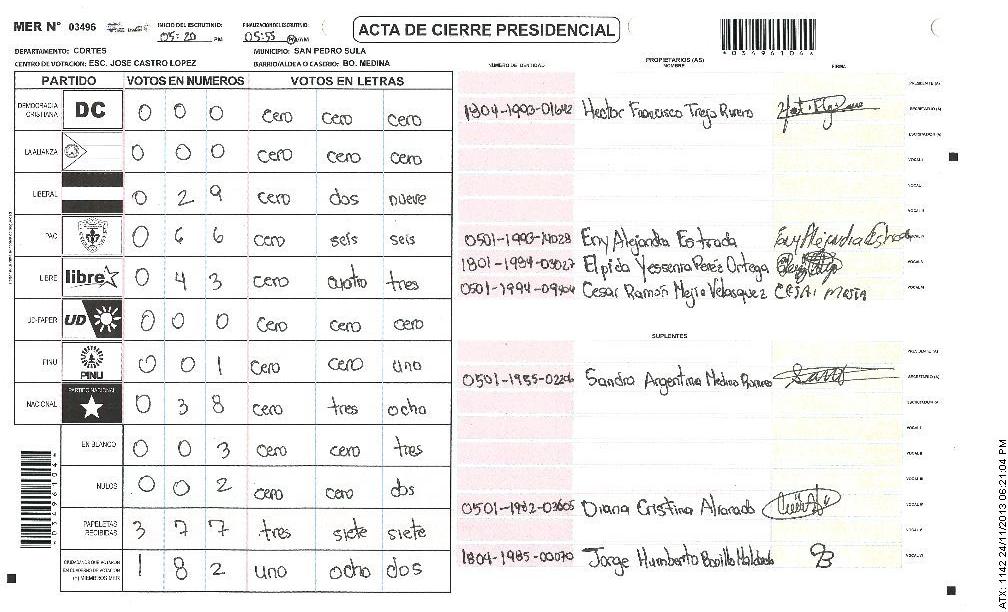 MER Nº 03496
INICIO DEL ESCRUTINIO: 05:20 PM
FINALIZACION DEL ESCRUTINIO: 05:55 PM/AM
ACTA DE CIERRE PRESIDENCIAL
4034961046
DEPARTAMENTO: CORTES
MUNICIPIO: SAN PEDRO SULA
CENTRO DE VOTACION: ESC. JOSE CASTRO LOPEZ
BARRIO/ALDEA O CASERIO: BO. MEDINA
PARTIDO VOTOS EN NUMEROS VOTOS EN LETRAS
DEMOCRACIA CRISTIANA DC 0 0 0 cero cero cero
LA ALIANZA 0 0 0 cero cero cero
LIBERAL 0 2 9 cero dos nueve
PAC 0 6 6 cero seis seis
LIBRE libre 0 4 3 cero cuatro tres
UD-FAPER UD 0 0 0 cero cero cero
PINU PINU 0 0 1 cero cero uno
NACIONAL PARTIDO NACIONAL 0 3 8 cero tres ocho
EN BLANCO 0 0 3 cero cero tres
NULOS 0 0 2 cero cero dos
PAPELETAS RECIBIDAS 3 7 7 tres siete siete
CIUDADANOS QUE VOTARON EN CUADERNO DE VOTACION (+) MIEMBROS MER 1 8 2 uno ocho dos
PROPIETARIOS (AS)
NÚMERO DE IDENTIDAD NOMBRE FIRMA
PRESIDENTE (A)
1804-1993-01642 Hector Francisco Trejo Rivero SECRETARIO (A)
ESCRUTADOR (A)
VOCAL I
VOCAL II
VOCAL III
0501-1993-14028 Eny Alejandra Estrada Eny Alejandra Estrada VOCAL IV
1801-1984-03027 Elpida Yessenia Perez Ortega VOCAL V
0501-1994-09404 Cesar Ramón Mejia Velasquez Cesar Mejia VOCAL VI
SUPLENTES
PRESIDENTE (A)
0501-1955-02206 Sandra Argentina Medina Romero SECRETARIO (A)
ESCRUTADOR (A)
VOCAL I
VOCAL II
VOCAL III
0501-1982-03605 Diana Cristina Alvarado VOCAL IV
VOCAL V
1804-1985-00070 Jorge Humberto Bonilla Maldonado VOCAL VI
ATX: 1142 24/11/2013 06:21:04 PM